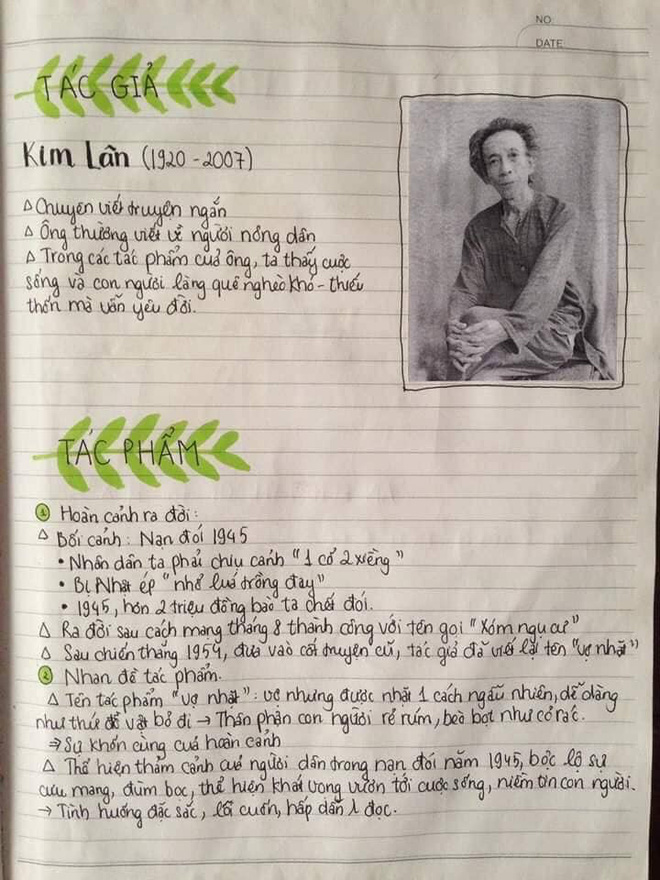 NO.
DATE
TÁC GIẢ
Kim Lân (1920 - 2007)
Δ Chuyên viết truyện ngắn
Δ Ông thường viết về người nông dân
Δ Trong các tác phẩm của ông, ta thấy cuộc
sống và con người làng quê nghèo khó - thiếu
thốn mà vẫn yêu đời.
TÁC PHẨM
1 Hoàn cảnh ra đời:
Δ Bối cảnh: Nạn đói 1945
• Nhân dân ta phải chịu cảnh "1 cổ 2 xiềng"
• Bị Nhật ép "nhổ lúa trồng đay"
• 1945, hơn 2 triệu đồng bào ta chết đói.
Δ Ra đời sau cách mạng tháng 8 thành công với tên gọi "Xóm ngụ cư"
Δ Sau chiến thắng 1954, dựa vào cốt truyện cũ, tác giả đã viết lại tên "vợ nhặt"
2 Nhan đề tác phẩm.
Δ Tên tác phẩm "vợ nhặt": vợ nhưng được nhặt 1 cách ngẫu nhiên, dễ dàng
như thứ đồ vật bỏ đi → Thân phận con người rẻ rúm, bèo bọt như cỏ rác.
⇒ Sự khốn cùng của hoàn cảnh
Δ Thể hiện thảm cảnh của người dân trong nạn đói năm 1945, bộc lộ sự
cưu mang, đùm bọc, thể hiện khát vọng vươn tới cuộc sống, niềm tin con người.
→ Tình huống đặc sắc, lôi cuốn, hấp dẫn đọc.